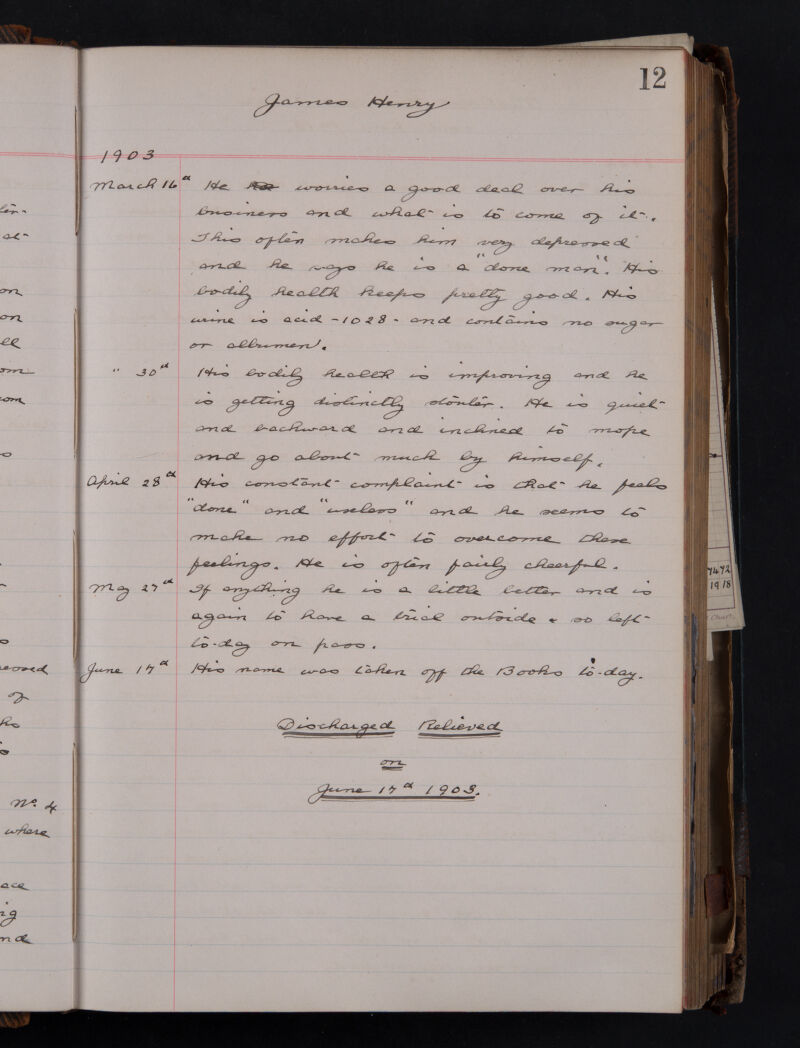 12
James Henry
1903
March 16th He worries a good deal over his
business and what is to come of it.
This often makes him very depressed
and he says he is a "done man". His
bodily health keeps pretty good. His
urine is acid - 1028 - and contains no sugar
or albumen.
" 30th His bodily health is improving and he
is getting distinctly stouter. He is quiet
and backward and inclined to mope
and go about much by himself.
April 28th His constant complaint is that he feels
"done" and "useless" and he seems to
make no effort to overcome these
feelings. He is often fairly cheerful.
May 27th If anything he is a little better and is
again to have a trial outside & so left
to-day on pass.
June 17th His name was taken off the Books to-day.
Discharged Relieved
on
June 17th 1903.
on
on
of
No. 4
where
7472
1918